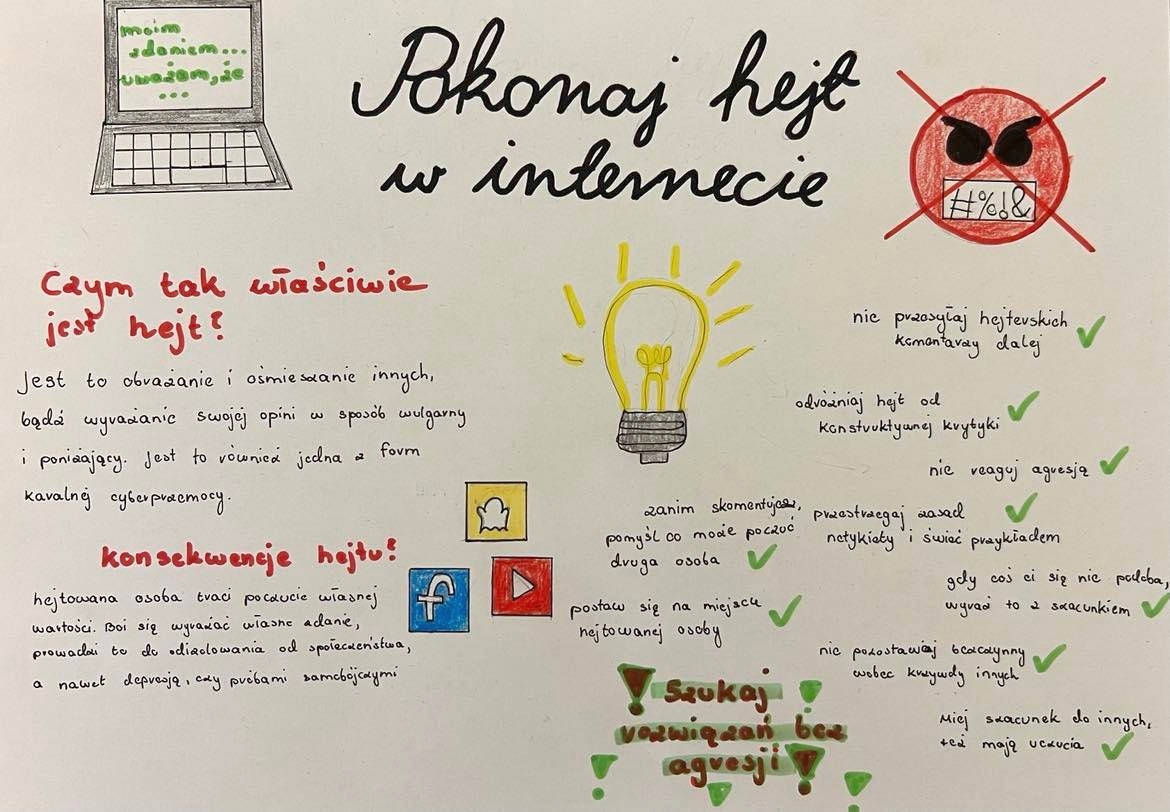 moim
zdaniem...
uważam, że
...
Pokonaj hejt
w internecie
#%!&
Czym tak właściwie
jest hejt?
Jest to obrażanie i ośmieszanie innych,
bądź wyrażanie swojej opini w sposób wulgarny
i poniżający. Jest to również jedna z form
karalnej cyberprzemocy.
konsekwencje hejtu?
hejtowana osoba traci poczucie własnej
wartości. Boi się wyrażać własne zdanie,
prowadzi to do odizolowania od społeczeństwa,
a nawet depresją, czy próbami samobójczymi
f
zanim skomentujesz,
pomyśl co może poczuć
druga osoba
postaw się na miejscu
hejtowanej osoby
nie przesyłaj hejterskich
komentarzy dalej
odróżniaj hejt od
konstruktywnej krytyki
nie reaguj agresją
przestrzegaj zasad
netykiety i świeć przykładem
gdy coś ci się nie podoba,
wyraź to z szacunkiem
nie pozostawaj bezczynny
wobec krzywdy innych
Miej szacunek do innych,
też mają uczucia
! Szukaj !
rozwiązań bez
agresji !